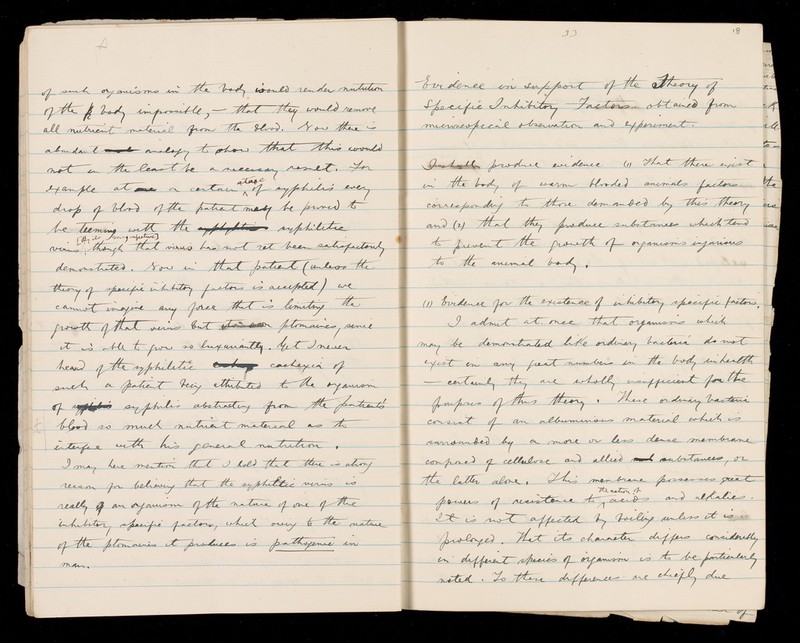 of such organisms in the body would render nutrition
of the body impossible, – that they would remove
all nutrient material from the blood. Now there is
abundant analogy to show that this would
not in the least be a necessary result. For
example at a certain stage of syphilis every
drop of blood of the patient may be proved to
be teeming with the syphilitic
virus (By its being infective) though that virus has not yet been satisfactorily
demonstrated. Now in that patient (unless the
theory of specific inhibitory factors is accepted) we
cannot imagine any force that is limiting the
growth of that virus but ptomaines, since
it is able to grow so luxuriantly. Yet I never
heard of the syphilitic cachexia of
such a patient being attributed to the organism
of syphilis abstracting from the patient's
blood so much nutrient material as to
interfere with his general nutrition.
I may here mention that I hold that there is strong
reason for believing that the syphilitic virus is
really an organism of the nature of one of the
inhibitory specific factors, which owing to the nature
of the ptomaines it produces is pathogenic in
man.
33
18
Evidence in support of the Theory of
Specific Inhibitory Factors obtained from
microscopical observation and experiment.
I shall produce evidence (1) That there exist
in the body of warm blooded animals factors
corresponding to those demanded by this theory
and (2) that they produce substances which tend
to prevent the growth of organisms injurious
to the animal body.
(1) Evidence for the existence of inhibitory specific factors.
I admit at once that organisms which
may be demonstrated like ordinary bacteria do not
exist in any great numbers in the body in health
– certainly they are wholly insufficient for the
purposes of this theory. These ordinary bacteria
consist of an albuminous material which is
surrounded by a more or less dense membrane
composed of cellulose and allied substances, or
the latter alone. This membrane possesses great
powers of resistance to the action of acids and alkalies.
It is not affected by boiling unless it is
prolonged. That its character differs considerably
in different species of organism is to be particularly
noted. To these differences are chiefly due